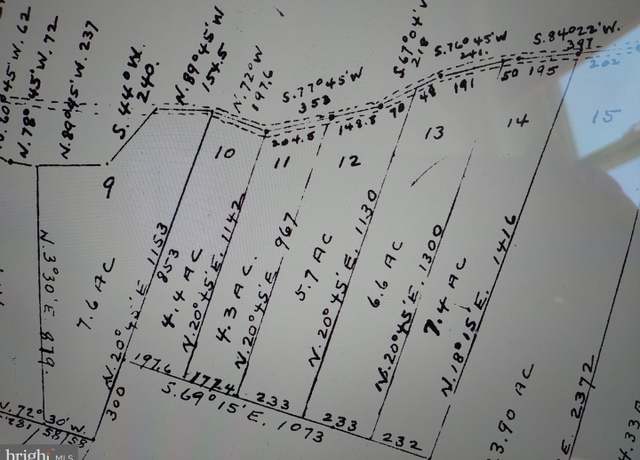 N.60°45'W.62
N.78°45'W.72
N.89°45'W.237
S.44°W.
240.
N.89°45'W
154.5
N.72°W
197.6
S.77°45'W
353
S.67°04'W
S.76°45'W
241.
S.84°22'W.
397.
204.5
148.5
48
191
50
195
202
9
10
11
12
13
14
15
N.3°30'E. 879.
7.6 AC
N.20°45'E. 1153
853
300
4.4 AC
N.20°45'E. 1142
4.3 AC.
N.20°45'E. 967
5.7 AC
N.20°45'E. 1130
6.6 AC
N.20°45'E. 1300
7.4 AC
N.18°15'E. 1416
3.90 AC
E. 2372
4.33
197.6
177.4
233
233
232
S.69°15'E. 1073
N.72°30'W.
281
58
155
bright MLS